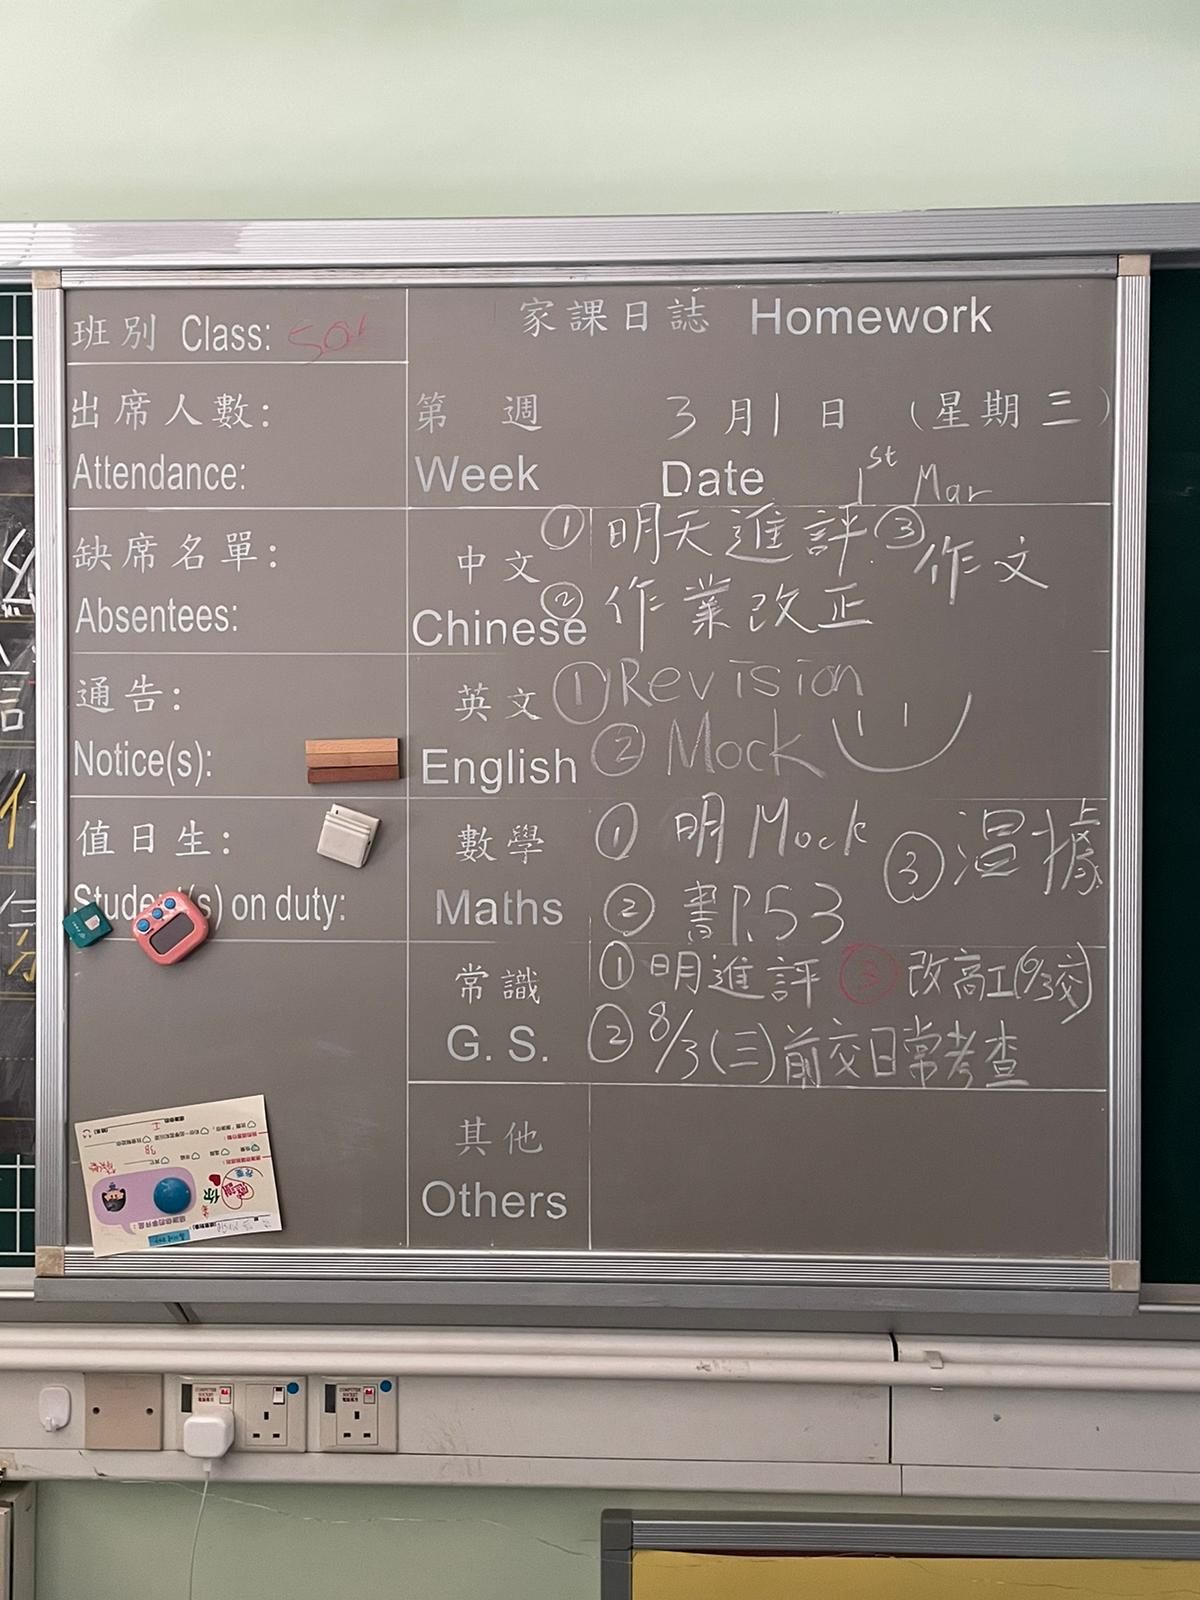 班別 Class:
家課日誌 Homework
出席人數:
Attendance:
第 週 3月1日 (星期三)
Week Date 1st Mar
缺席名單:
Absentees:
中文
Chinese
① 明天進評 ③ 作文
② 作業改正
通告:
Notice(s):
英文
English
① Revision
② Mock
值日生:
Student(s) on duty:
數學
Maths
① 明 Mock ③
② 書P.53
常識
G. S.
① 明進評 ③ 改高工(6/3交)
② 8/3(三)前交日常考查
其他
Others
COMPUTER
COMPUTER